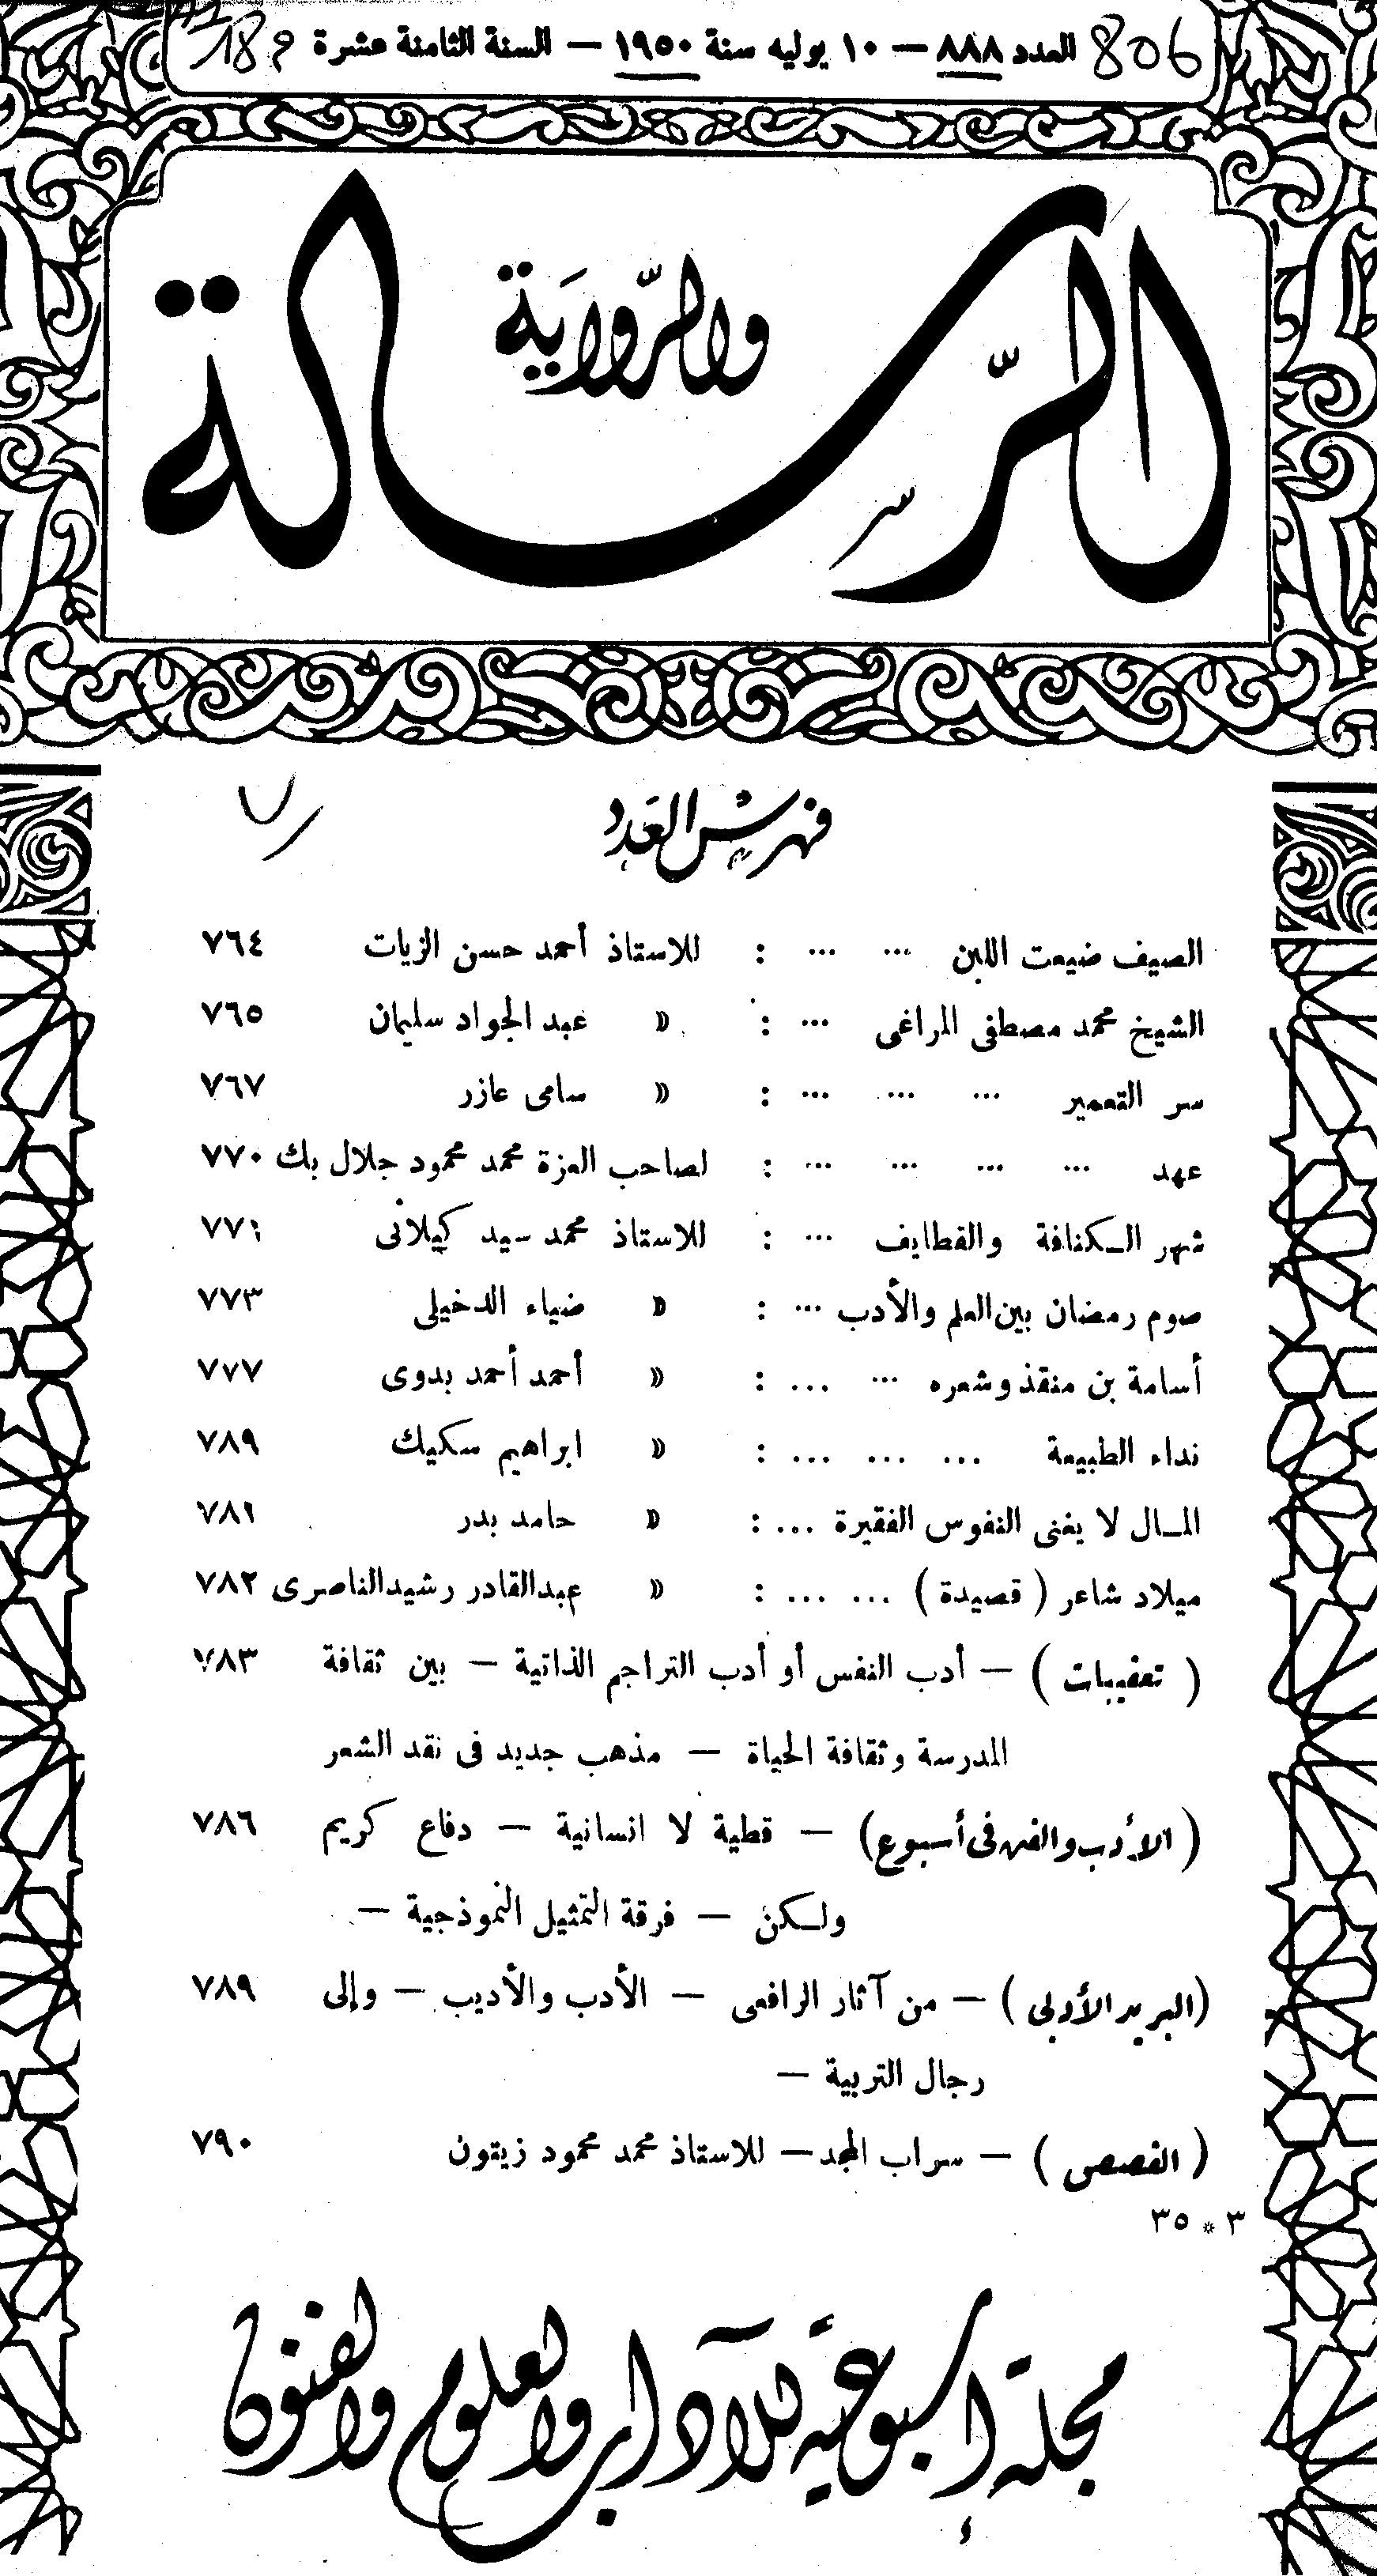 806 العدد ٨٨٨ — ١٠ يوليه سنة ١٩٥٠ — السنة الثامنة عشرة م 18
الرسالة
والرّواية
فهرس العدد
الصيف ضيعت اللبن ... ... : للاستاذ أحمد حسن الزيات ٧٦٤
الشيخ محمد مصطفى المراغى ... : » عبد الجواد سليمان ٧٦٥
سر التعمير ... ... ... : » سامى عازر ٧٦٧
عهد ... ... ... ... : لصاحب العزة محمد محمود جلال بك ٧٧٠
شهر الكنافة والقطايف ... : للاستاذ محمد سيد كيلانى ٧٧١
صوم رمضان بين العلم والأدب ... : » ضياء الدخيلى ٧٧٣
أسامة بن منقذ وشعره ... ... : » أحمد أحمد بدوى ٧٧٧
نداء الطبيعة ... ... ... : » ابراهيم سكيك ٧٨٩
المال لا يغنى النفوس الفقيرة ... : » حامد بدر ٧٨١
ميلاد شاعر ( قصيدة ) ... ... : » عبدالقادر رشيدالناصرى ٧٨٢
( تعقيبات ) — أدب النفس أو أدب التراجم الذاتية — بين ثقافة ٧٨٣
المدرسة وثقافة الحياة — مذهب جديد فى نقد الشعر
( الأدب والفن فى أسبوع) — قطية لا انسانية — دفاع كريم ٧٨٦
ولكن — فرقة التمثيل النموذجية —
(البريد الأدبى ) — من آثار الرافعى — الأدب والأديب — وإلى ٧٨٩
رجال التربية —
( القصص ) — سراب المجد — للاستاذ محمد محمود زيتون ٧٩٠
٣ * ٣٥
مجلة أسبوعية للآداب والعلوم والفنون